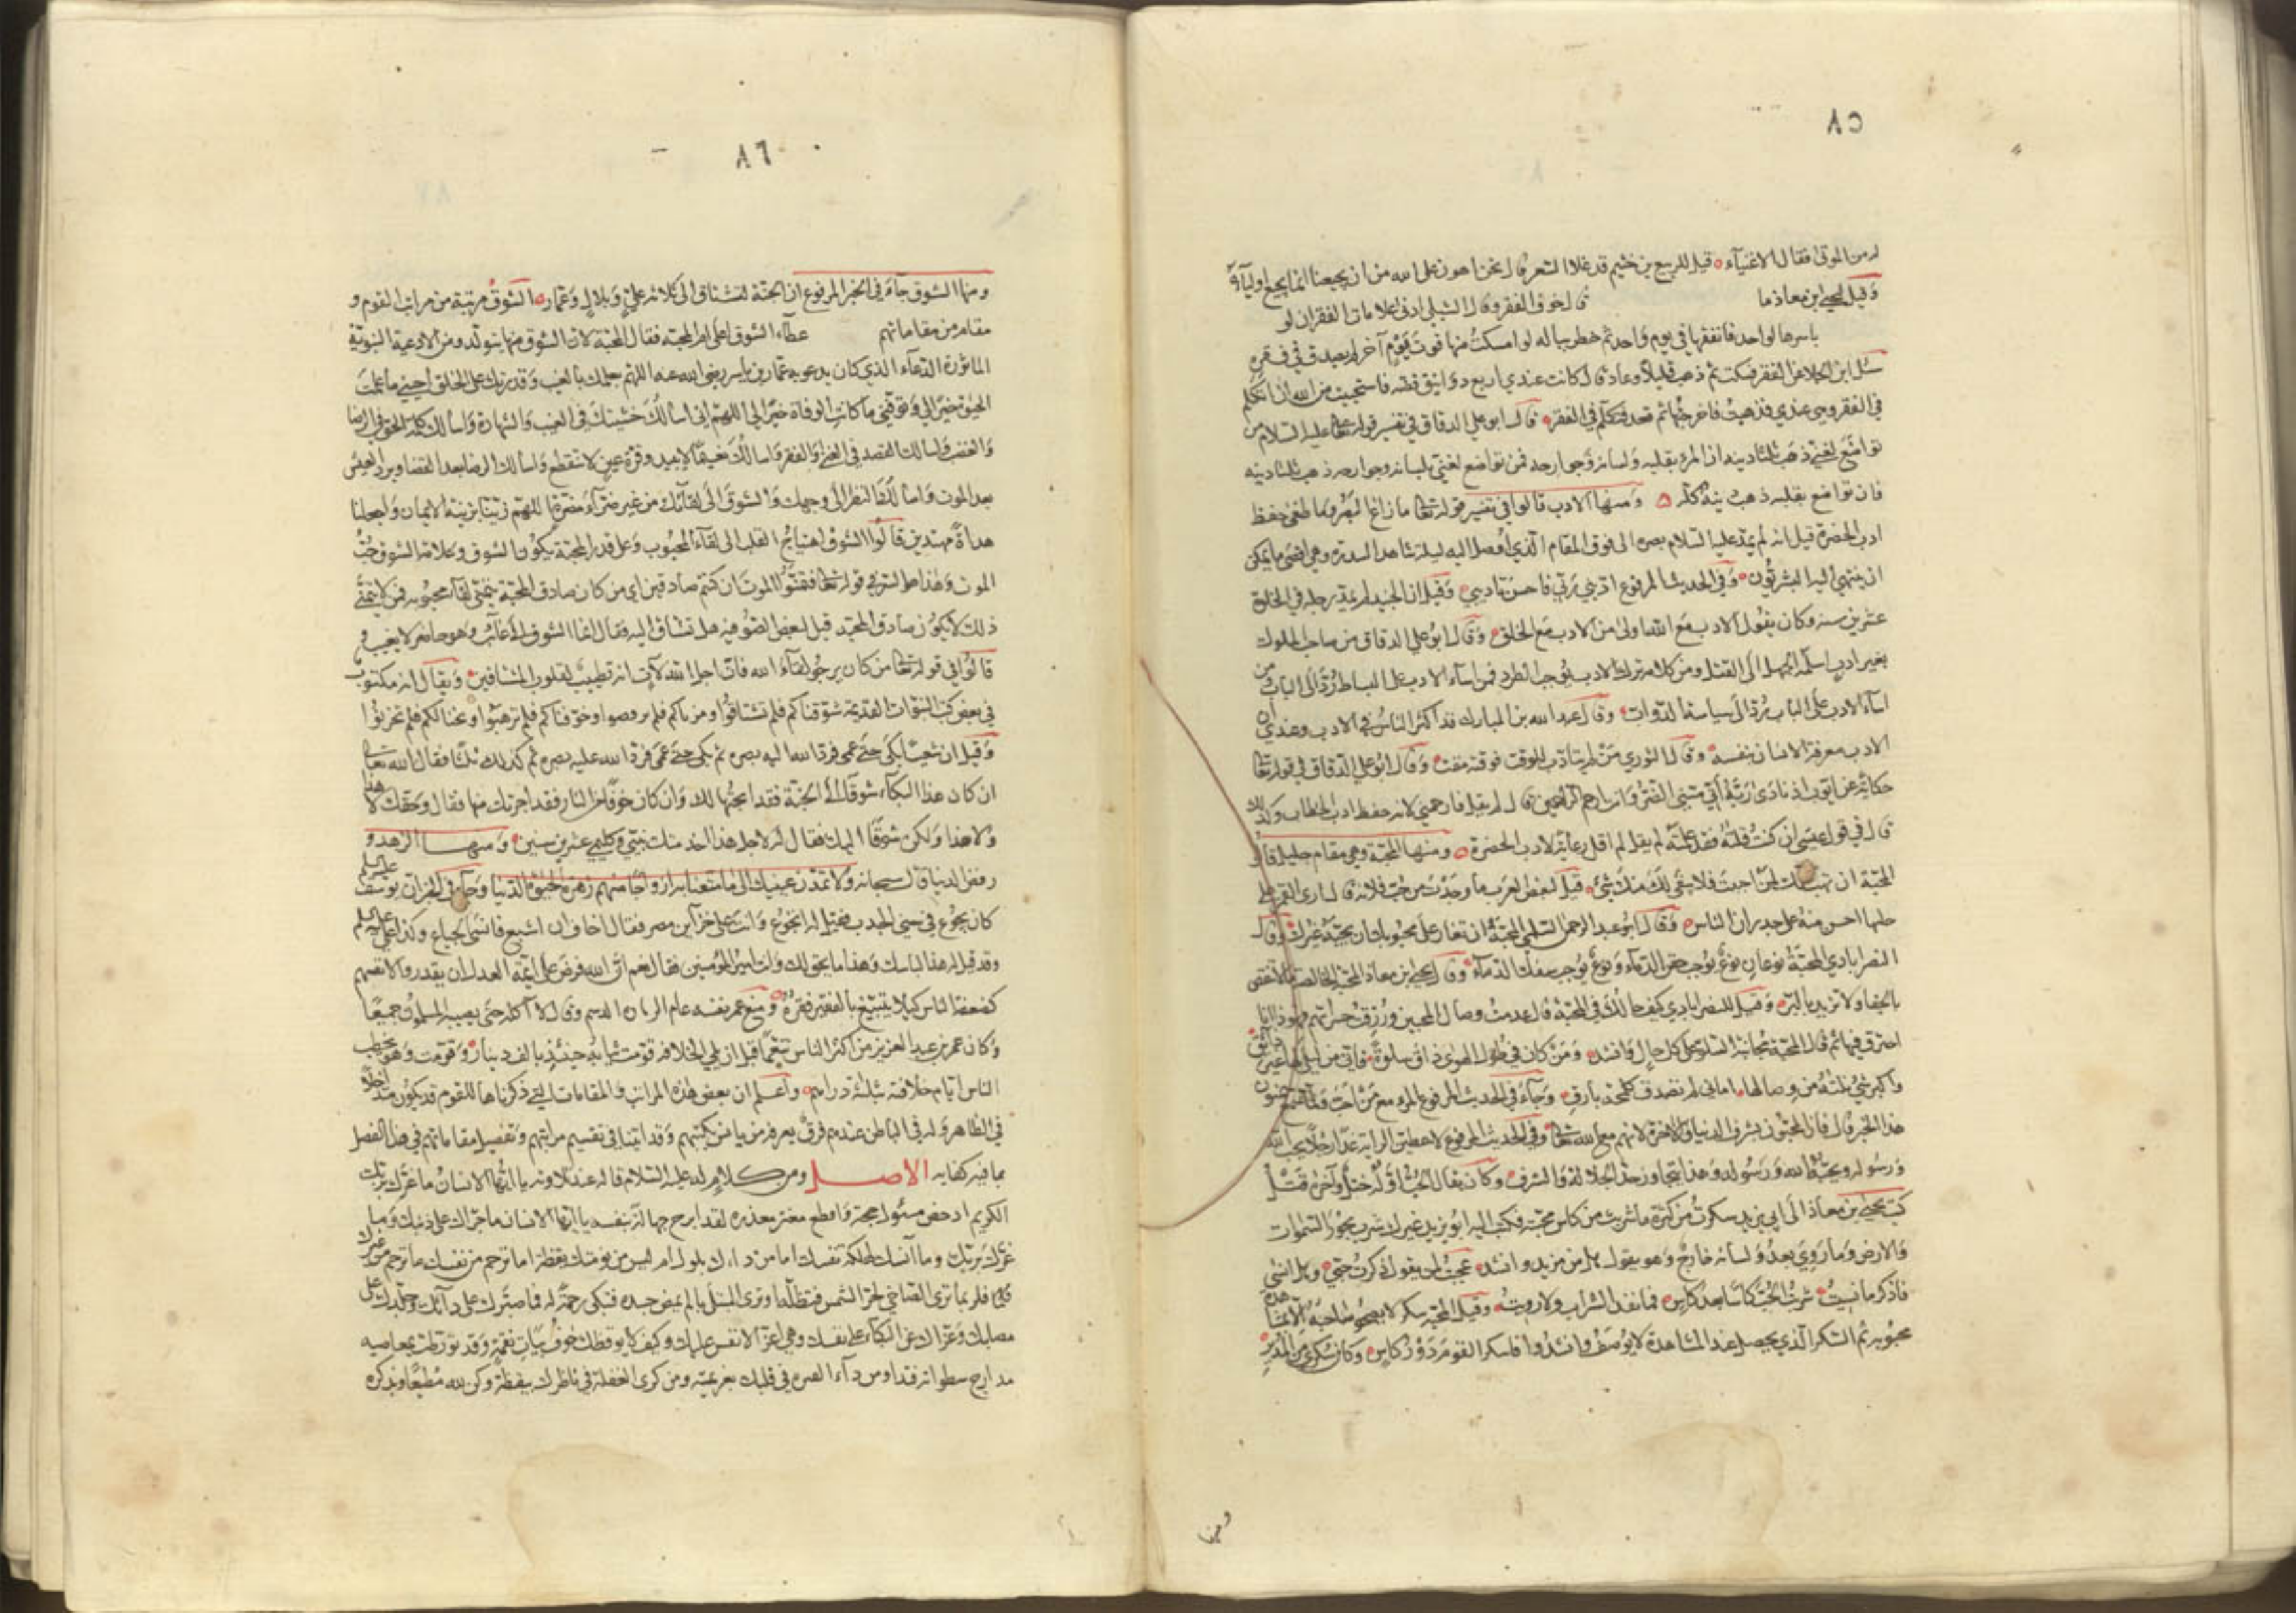 ٨٥
له من الموتى فقال الاغنياء قيل للربيع بن خثيم قد غلا السعر قال نحن اهون على الله من ان يجيعنا انما يجيع اولياءه
وقيل ليحيى ابن معاذ ما قال خوف الفقر وقال الشبلي ادنى علامات الفقر ان لو
باسرها لواحد فانفقها في يوم واحد ثم خطر بباله لو امسكت منها قوت يوم آخر لم يصدق في فقره
سئل ابن الجلا عن الفقر فسكت ثم ذهب قليلا وعاد قال كانت عندي اربع دوانيق فضة فاستحييت من الله ان اتكلم
في الفقر وهي عندي فذهبت فاخرجتها ثم قعد فتكلم في الفقر قال ابو علي الدقاق في تفسير قوله عليه السلام من
تواضع لغني ذهب ثلثا دينه ان المرء بقلبه ولسانه وجوارحه فمن تواضع لغني بلسانه وجوارحه ذهب ثلثا دينه
فان تواضع بقلبه ذهب دينه كله ومنها الادب قالوا في تفسير قوله تعالى ما زاغ البصر وما طغى حفظ
ادب الحضرة قيل انه لم يمد عليه السلام بصره الى فوق المقام الذي اوصل اليه ليلة شاهد السدرة وهي اقصى ما يمكن
ان ينتهي اليه البشريون وفي الحديث المرفوع ادبني ربي فاحسن تاديبي وقيل ان الجنيد لم يمد رجله في الخلوة
عشرين سنه وكان يقول الادب مع الله اولى من الادب مع الخلق وقال ابو علي الدقاق من صاحب الملوك
بغير ادب اسلمه الجهل الى القتل ومن كلامه ترك الادب يوجب الطرد فمن اساء الادب على البساط رد الى الباب ومن
اساء الادب على الباب رد الى سياسة الدواب وقال عبد الله بن المبارك قد اكثر الناس في الادب وعندي ان
الادب معرفة الانسان بنفسه وقال الثوري من لم يتادب للوقت فوقته مقت وقال ابو علي الدقاق في قوله تعالى
حكاية عن ايوب اذ نادى ربه اني مسني الضر وانت ارحم الراحمين قال لم يقل فارحمني لانه حفظ ادب الخطاب وكذلك
قال في قول عيسى ان كنت قلته فقد علمته لم يقل لم اقل رعاية لادب الحضرة ومنها المحبة وهي مقام جليل قالوا
المحبة ان تهب كلك لمن احببت فلا يبقى لك منك شيء قيل لبعض العرب ما وجدت من حب فلانة قال ارى القمر على
حايطها احسن منه على جدران الناس وقال ابو عبد الرحمن السلمي المحبة ان تغار على محبوبك ان يحبه غيرك وقال
النصراباذي المحبة نوعان نوع يوجب حقن الدماء ونوع يوجب سفك الدماء وقال يحيى بن معاذ المحبة الخالصة ان لا تنقص
بالجفا ولا تزيد بالبر وقيل للنصراباذي كيف حالك في المحبة قال عدمت وصال المحبين ورزقت حسراتهم فهو ذا انا
احترق فيها ثم قال المحبة مجانبة السلو على كل حال وانشد ومن كان في طول الهوى ذاق سلوة فاني من ليلى لها غير ذائق
واكبر شيء نلته من وصالها اماني لم تصدق كلمحة بارق وجاء في الحديث المرفوع المرء مع من احب
هذا الخبر قال فاز المحبون بشرف الدنيا والاخرة لانهم مع الله تعالى وفي الحديث المرفوع لاعطين الراية غدا رجلا يحب الله
ورسوله ويحبه الله ورسوله وهذا يتجاوز حد الجلالة والشرف وكان يقال الحب اوله ختل وآخره قتل
كتب يحيى بن معاذ الى ابي يزيد سكرت من كثرة ما شربت من كاس محبته فكتب اليه ابو يزيد غيرك شرب بحور السموات
والارض وما روي بعد ولسانه خارج وهو يقول هل من مزيد وانشد عجبت لمن يقول ذكرت حبي وهل انسى
فاذكر ما نسيت شربت الحب كاسا بعد كاس فما نفد الشراب ولا رويت وقيل المحبة سكر لا يصحو صاحبه الا بمشاهدة
محبوبه ثم السكر الذي يحصل عند المشاهدة لا يوصف وانشدوا فاسكر القوم دور كاس وكان سكري من المدير
ومنها
٨٦
ومنها الشوق جاء في الخبر المرفوع ان الجنة لتشتاق الى ثلاثة علي وبلال وعمار الشوق مرتبة من مراتب القوم و
مقام من مقاماتهم عطاء الشوق اعلى ام المحبة فقال المحبة لان الشوق منها يتولد ومن الادعية النبوية
الماثورة الدعاء الذي كان يدعو به عمار بن ياسر رضي الله عنه اللهم بعلمك بالغيب وقدرتك على الخلق احيني ما علمت
الحيوة خيرا لي وتوفني ما كانت الوفاة خيرا لي اللهم اني اسالك خشيتك في الغيب والشهادة واسالك كلمة الحق في الرضا
والغضب واسالك القصد في الغنى والفقر واسالك نعيما لا يبيد وقرة عين لا تنقطع واسالك الرضا بعد القضا وبرد العيش
بعد الموت واسالك النظر الى وجهك والشوق الى لقائك من غير ضراء مضرة اللهم زينا بزينة الايمان واجعلنا
هداة مهتدين قالوا الشوق اهتياج القلب الى لقاء المحبوب وعلى قدر المحبة يكون الشوق وعلامة الشوق حب
الموت وهذا هو السر في قوله تعالى فتمنوا الموت ان كنتم صادقين اي من كان صادق المحبة يتمنى لقاء محبوبه فمن لا يتمنى
ذلك لا يكون صادق المحبة قيل لبعض الصوفيه هل تشتاق اليه فقال انما الشوق الى غائب وهو حاضر لا يغيب و
قالوا في قوله تعالى من كان يرجو لقاء الله فان اجل الله لآت انه تطييب لقلوب المشتاقين ويقال انه مكتوب
في بعض كتب النبوات القديمة شوقناكم فلم تشتاقوا وزمرنا لكم فلم ترقصوا وخوفناكم فلم ترهبوا ونحنا لكم فلم تحزنوا
وقيل ان شعيبا بكى حتى عمي فرد الله اليه بصره ثم بكى حتى عمي فرد الله عليه بصره ثم كذلك ثلثا فقال الله تعالى
ان كان هذا البكاء شوقا الى الجنة فقد ابحتها لك وان كان خوفا من النار فقد اجرتك منها فقال وحقك لا هذا
ولا هذا ولكن شوقا اليك فقال له لاجل هذا اخدمتك نبيي وكليمي عشر سنين ومنها الزهد و
رفض الدنيا قال سبحانه ولا تمدن عينيك الى ما متعنا به ازواجا منهم زهرة الحيوة الدنيا وجاء في الخبر ان يوسف عليه السلم
كان يجوع في سني الجدب فقيل له اتجوع وانت على خزائن مصر فقال اخاف ان اشبع فانسى الجياع وكذا علي عليه السلم
وقد قيل له هذا لباسك وهذا ماكولك وانت امير المؤمنين فقال نعم ان الله فرض على ائمة العدل ان يقدروا لانفسهم
كضعفة الناس كيلا يتبيغ بالفقير فقره ومنع عمر نفسه عام الرمادة الدسم وقال لا آكله حتى يصيبه المسلمون جميعا
وكان عمر بن عبد العزيز من اكثر الناس تنعما قبل ان يلي الخلافة قومت ثيابه حينئذ بالف دينار وقومت وهو يخطب
الناس ايام خلافته بثلثة دراهم واعلم ان بعض هذه المراتب والمقامات التي ذكرناها للقوم قد يكون متداخلا
في الظاهر وله في الباطن عندهم فرق يعرفه من يانس بكتبهم وقد اتينا في تقسيم مراتبهم وتفصيل مقاماتهم في هذا الفصل
بما فيه كفايه الاصل ومن كلام له عليه السلام قاله عند تلاوته يا ايها الانسان ما غرك بربك
الكريم ادحض مسئول حجة واقطع مغتر معذره لقد ابرح جهالة بنفسه يا ايها الانسان ما جراك على ذنبك وما
غرك بربك وما آنسك بهلكة نفسك اما من دائك بلول ام ليس من نومتك يقظة اما ترحم من نفسك ما ترحم من غيرك
فلربما ترى الضاحي لحر الشمس فتظله او ترى المبتلى بالم يمض جسده فتبكي رحمة له فما صبرك على دائك وجلدك على
مصابك وعزاك عن البكاء على نفسك وهي اعز الانفس عليك وكيف لا يوقظك خوف بيات نقمة وقد تورطت بمعاصيه
مدارج سطواته فتداو من داء الفترة في قلبك بعزيمة ومن كرى الغفلة في ناظرك بيقظة وكن لله مطيعا وبذكره